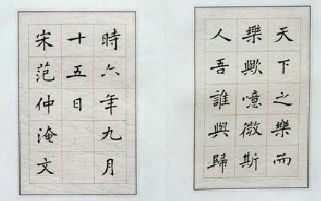 天下之樂而
樂歟噫微斯
人吾誰與歸
時六年九月
十五日
宋范仲淹文